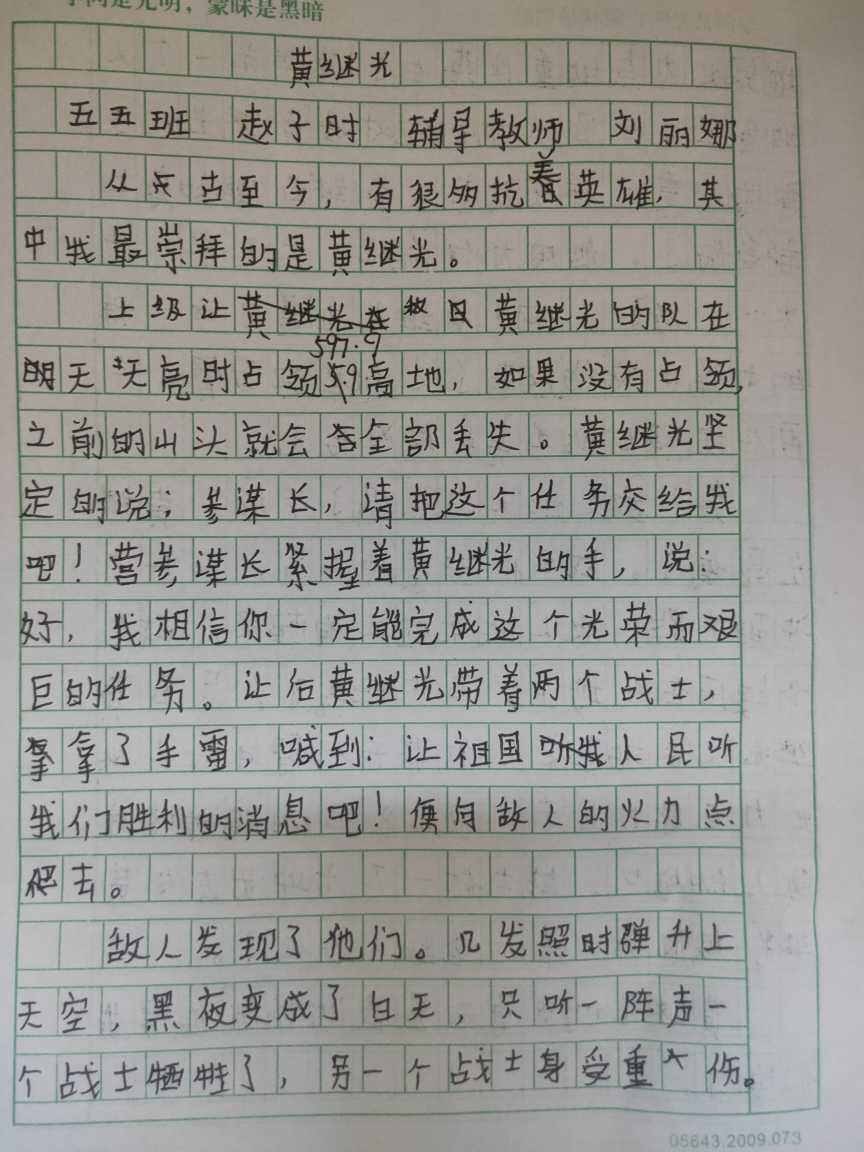 学问是光明，蒙昧是黑暗
黄继光
五五班 赵子时 辅导教师 刘丽娜
从古至今，有很多抗美英雄，其
中我最崇拜的是黄继光。
上级让黄继光的队在
597.9
明天天亮时占领高地，如果没有占领，
之前的山头就会全部丢失。黄继光坚
定的说：参谋长，请把这个任务交给我
吧！营参谋长紧握着黄继光的手，说：
好，我相信你一定能完成这个光荣而艰
巨的任务。让后黄继光带着两个战士，
拿了手雷，喊到：让祖国人民听
我们胜利的消息吧！便向敌人的火力点
爬去。
敌人发现了他们。几发照时弹升上
天空，黑夜变成了白天，只听一阵声一
个战士牺牲了，另一个战士身受重伤。
05643.2009.073